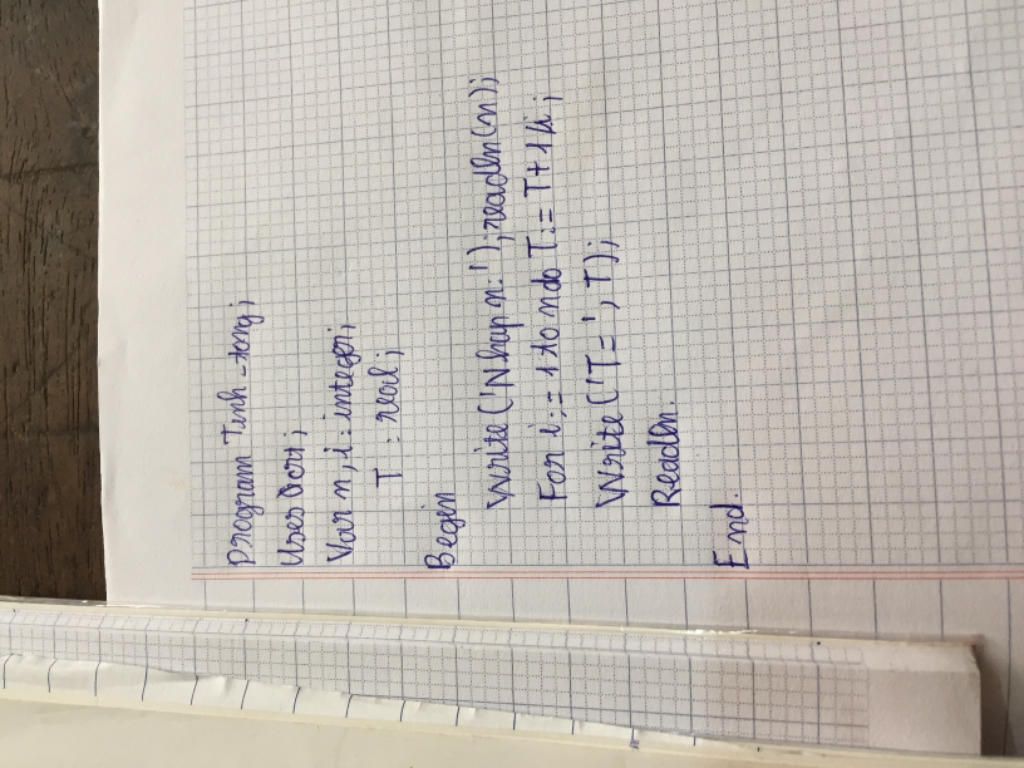 program Tinh_tong;
Uses crt;
Var n, i: integer;
T: real;
Begin
Write('Nhap n:'); readln(n);
For i:= 1 to n do T:= T+1/i;
Write('T=', T);
Readln.
End.